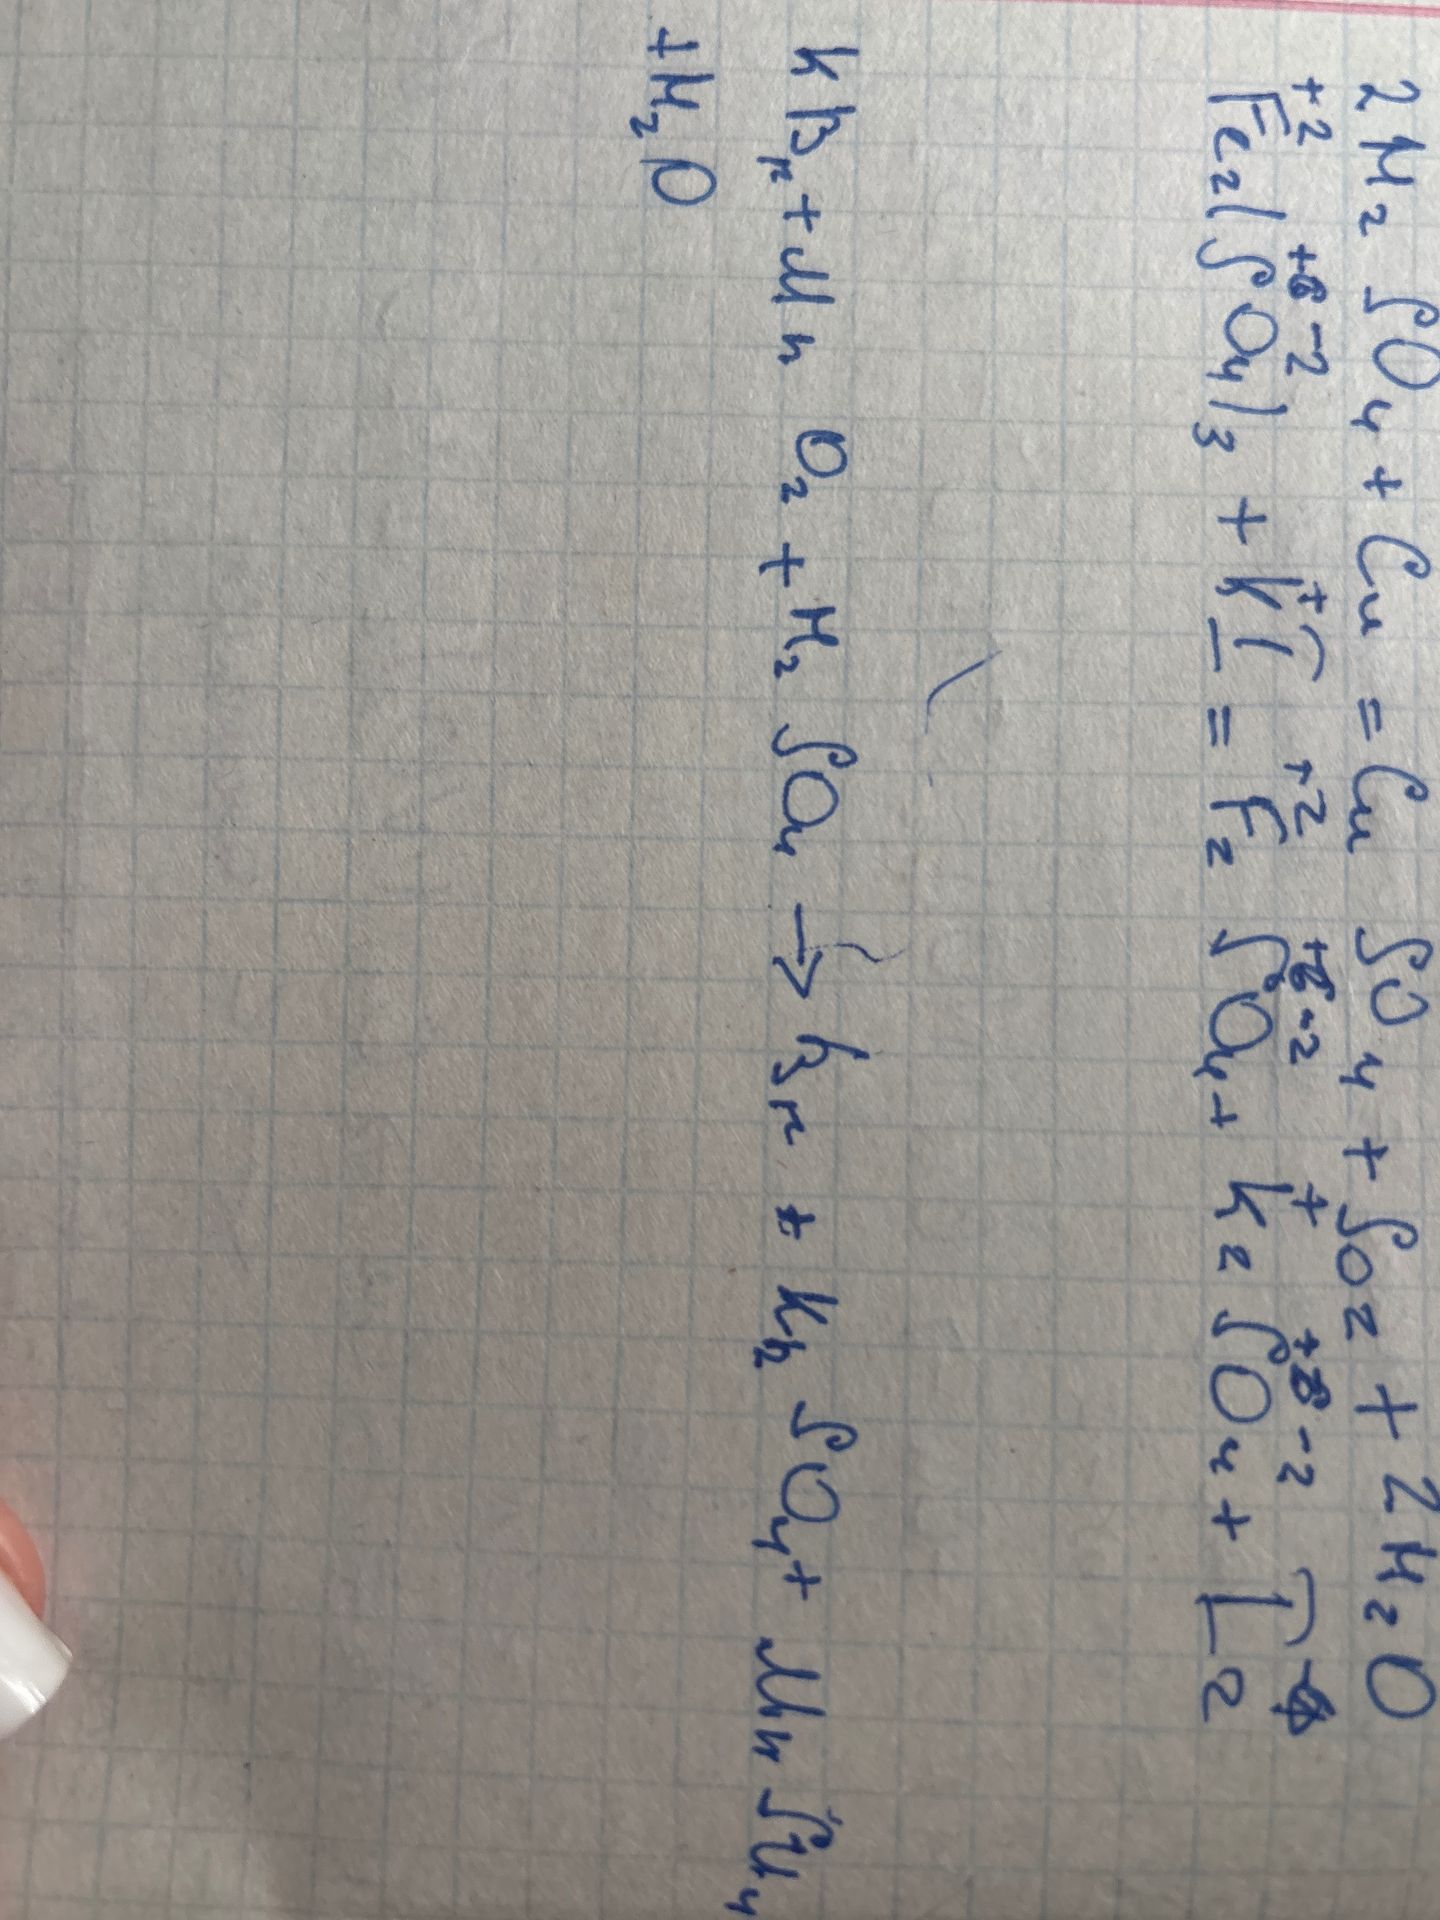 2H₂SO₄ + Cu = CuSO₄ + SO₂ + 2H₂O
+2 +6 -2 + - +2 +6 -2 + +6 -2 -
Fe₂(SO₄)₃ + KI = F₂SO₄ + K₂SO₄ + I₂
KBr + MnO₂ + H₂SO₄ → Br + K₂SO₄ + MnSO₄
+H₂O